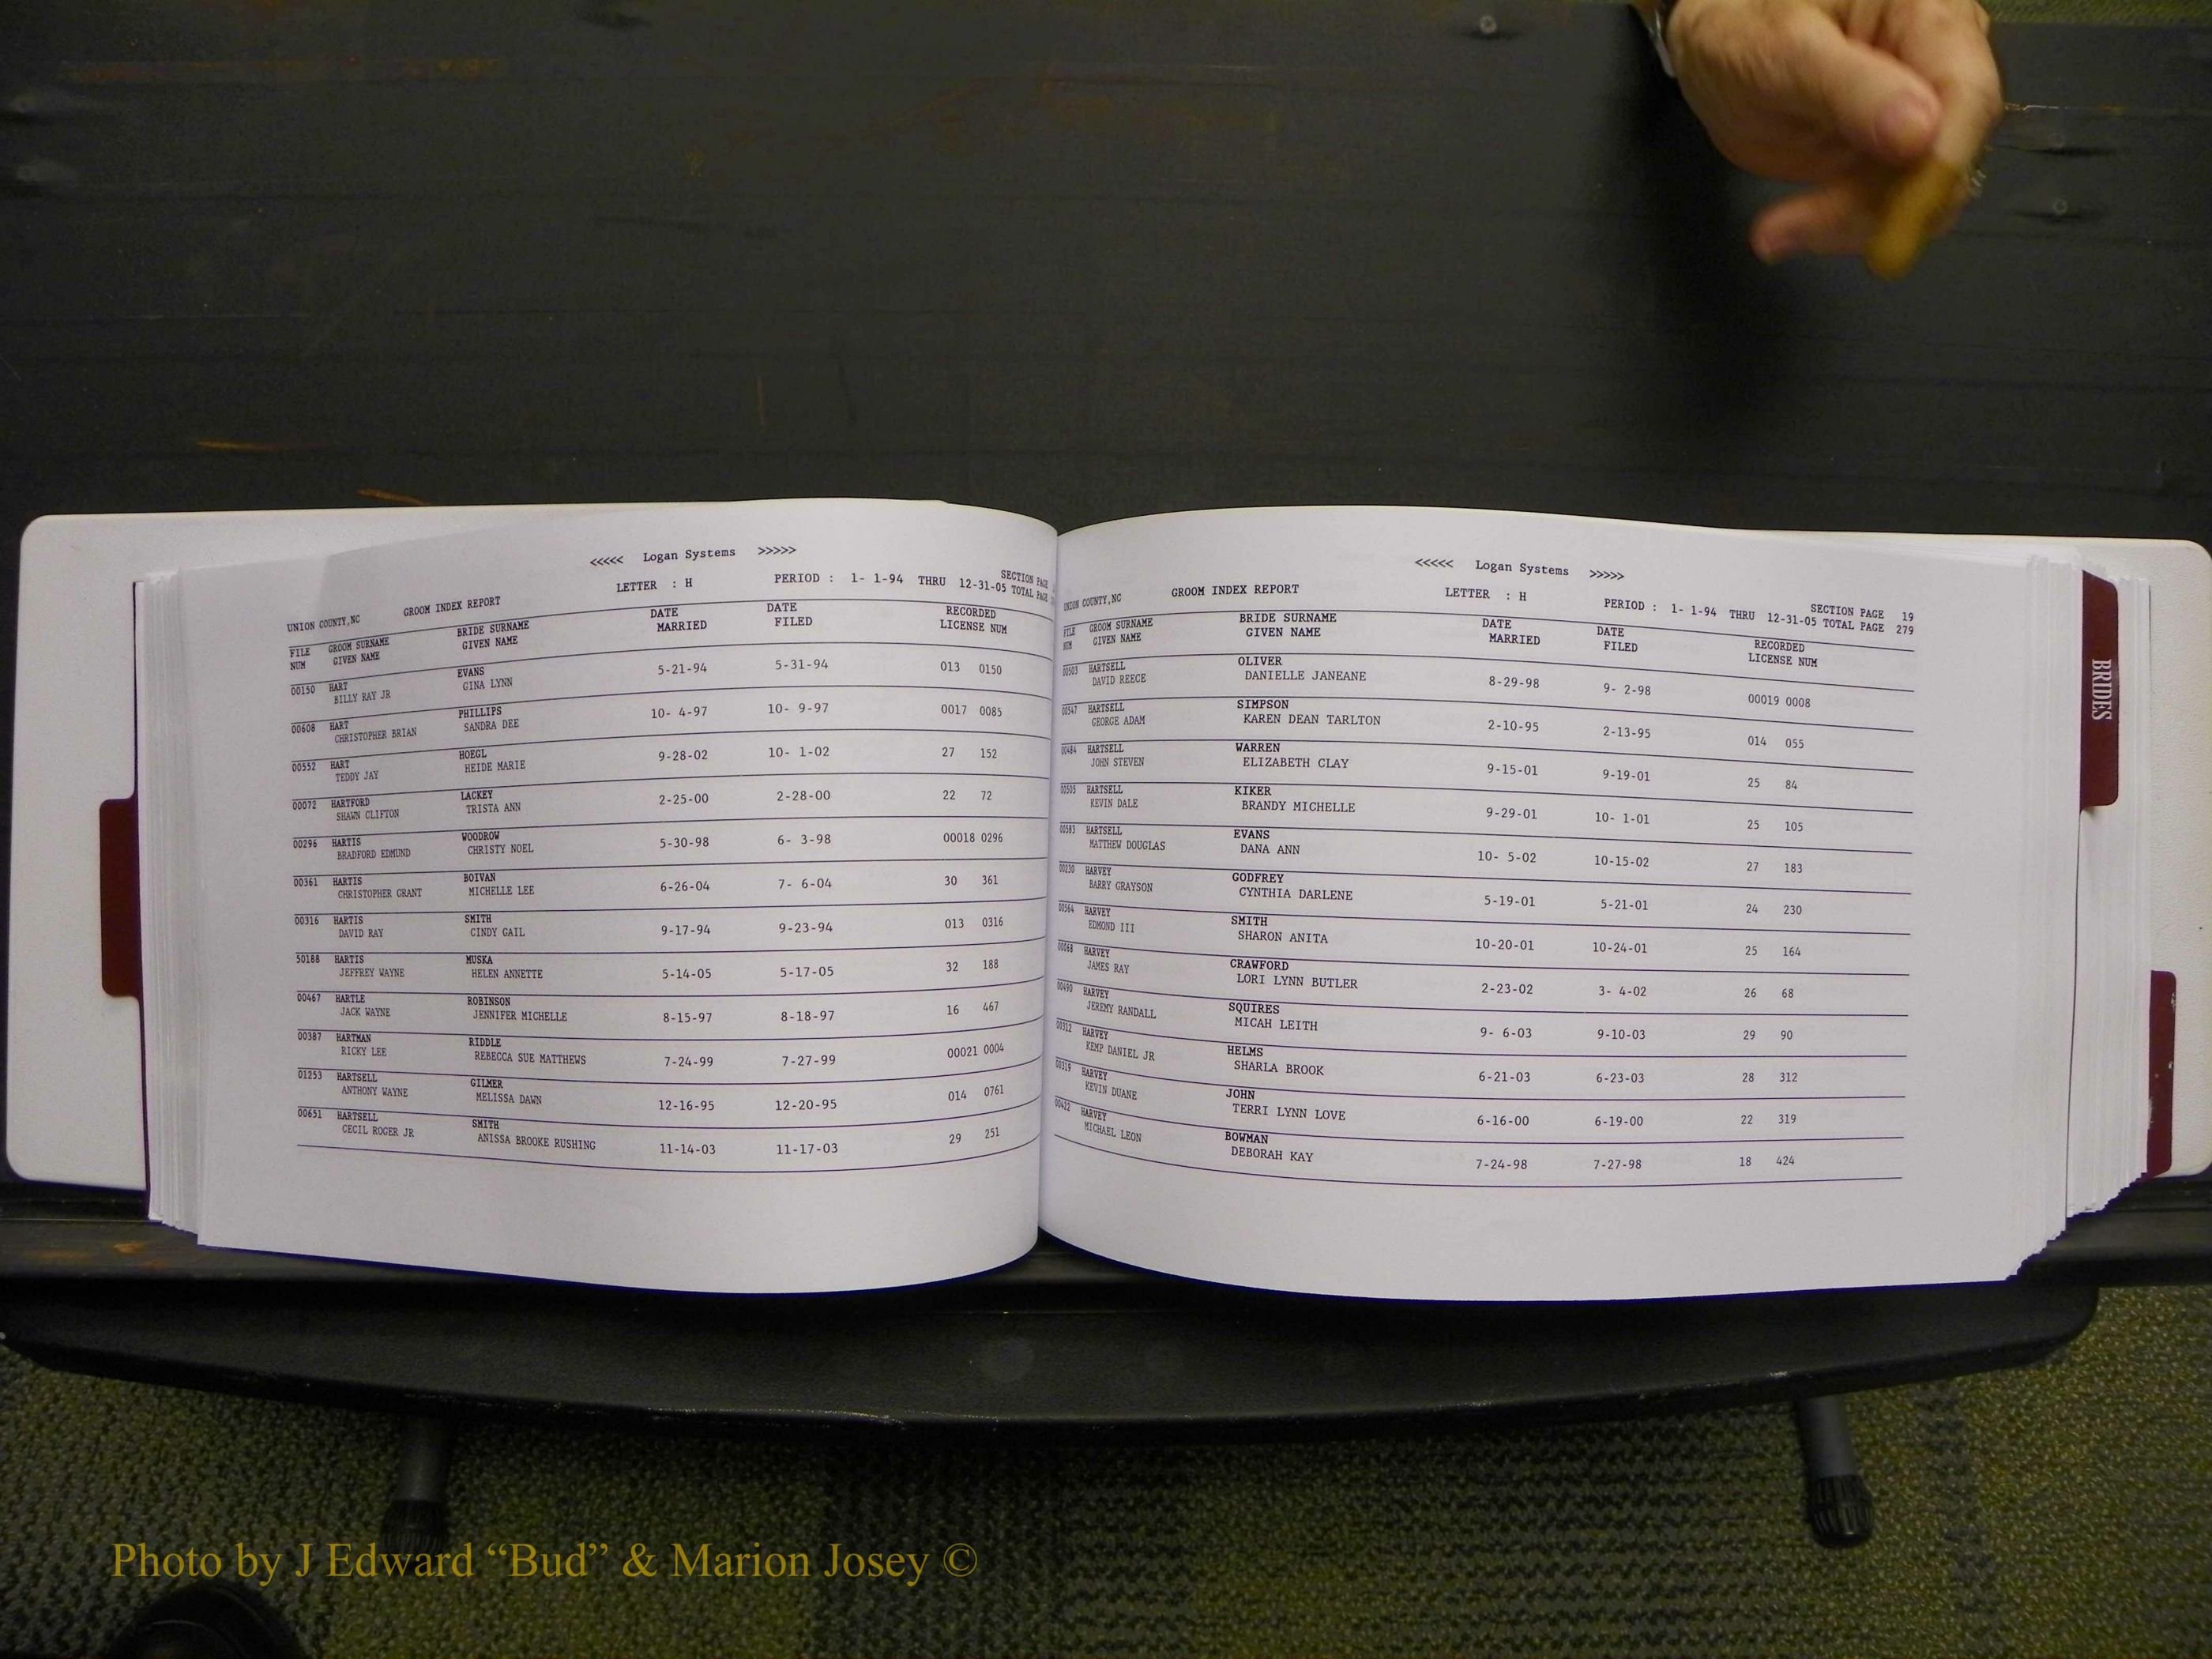 <<<<< Logan Systems >>>>>
UNION COUNTY,NC GROOM INDEX REPORT LETTER : H PERIOD : 1- 1-94 THRU 12-31-05 SECTION PAGE
TOTAL PAGE
FILE GROOM SURNAME BRIDE SURNAME DATE DATE RECORDED
NUM GIVEN NAME GIVEN NAME MARRIED FILED LICENSE NUM
00150 HART EVANS 5-21-94 5-31-94 013 0150
BILLY RAY JR GINA LYNN
00608 HART PHILLIPS 10- 4-97 10- 9-97 0017 0085
CHRISTOPHER BRIAN SANDRA DEE
00552 HART HOEGL 9-28-02 10- 1-02 27 152
TEDDY JAY HEIDE MARIE
00072 HARTFORD LACKEY 2-25-00 2-28-00 22 72
SHAWN CLIFTON TRISTA ANN
00296 HARTIS WOODROW 5-30-98 6- 3-98 00018 0296
BRADFORD EDMUND CHRISTY NOEL
00361 HARTIS BOIVAN 6-26-04 7- 6-04 30 361
CHRISTOPHER GRANT MICHELLE LEE
00316 HARTIS SMITH 9-17-94 9-23-94 013 0316
DAVID RAY CINDY GAIL
50188 HARTIS MUSKA 5-14-05 5-17-05 32 188
JEFFREY WAYNE HELEN ANNETTE
00467 HARTLE ROBINSON 8-15-97 8-18-97 16 467
JACK WAYNE JENNIFER MICHELLE
00387 HARTMAN RIDDLE 7-24-99 7-27-99 00021 0004
RICKY LEE REBECCA SUE MATTHEWS
01253 HARTSELL GILMER 12-16-95 12-20-95 014 0761
ANTHONY WAYNE MELISSA DAWN
00651 HARTSELL SMITH 11-14-03 11-17-03 29 251
CECIL ROGER JR ANISSA BROOKE RUSHING
<<<<< Logan Systems >>>>>
UNION COUNTY,NC GROOM INDEX REPORT LETTER : H PERIOD : 1- 1-94 THRU 12-31-05 SECTION PAGE 19
TOTAL PAGE 279
FILE GROOM SURNAME BRIDE SURNAME DATE DATE RECORDED
NUM GIVEN NAME GIVEN NAME MARRIED FILED LICENSE NUM
00503 HARTSELL OLIVER 8-29-98 9- 2-98 00019 0008
DAVID REECE DANIELLE JANEANE
00547 HARTSELL SIMPSON 2-10-95 2-13-95 014 055
GEORGE ADAM KAREN DEAN TARLTON
00484 HARTSELL WARREN 9-15-01 9-19-01 25 84
JOHN STEVEN ELIZABETH CLAY
00505 HARTSELL KIKER 9-29-01 10- 1-01 25 105
KEVIN DALE BRANDY MICHELLE
00583 HARTSELL EVANS 10- 5-02 10-15-02 27 183
MATTHEW DOUGLAS DANA ANN
00230 HARVEY GODFREY 5-19-01 5-21-01 24 230
BARRY GRAYSON CYNTHIA DARLENE
00564 HARVEY SMITH 10-20-01 10-24-01 25 164
EDMOND III SHARON ANITA
00068 HARVEY CRAWFORD 2-23-02 3- 4-02 26 68
JAMES RAY LORI LYNN BUTLER
00490 HARVEY SQUIRES 9- 6-03 9-10-03 29 90
JEREMY RANDALL MICAH LEITH
00312 HARVEY HELMS 6-21-03 6-23-03 28 312
KEMP DANIEL JR SHARLA BROOK
00319 HARVEY JOHN 6-16-00 6-19-00 22 319
KEVIN DUANE TERRI LYNN LOVE
HARVEY BOWMAN 7-24-98 7-27-98 18 424
MICHAEL LEON DEBORAH KAY
BRIDES
Photo by J Edward “Bud” & Marion Josey ©